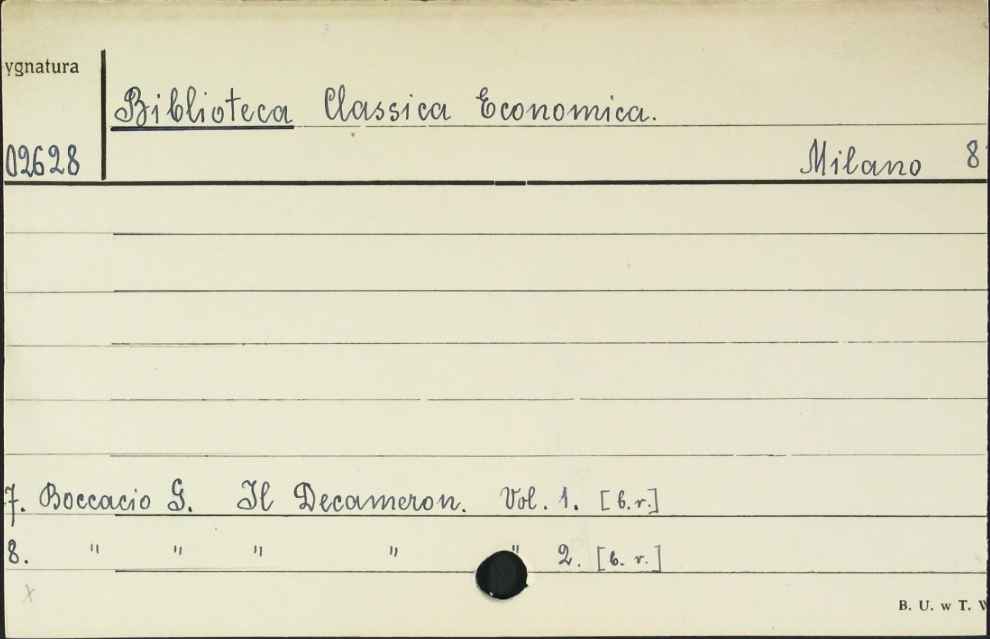 ygnatura
Biblioteca Classica Economica.
02628
Milano 8
7. Boccacio G. Il Decameron. Vol. 1. [b.r.]
8. " " " " " 2. [b. r.]
x
B. U. w T.